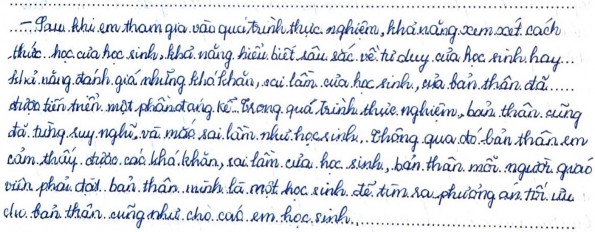 - Sau khi em tham gia vào quá trình thực nghiệm, khả năng xem xét cách
thức học của học sinh, khả năng hiểu biết sâu sắc về tư duy của học sinh hay
khả năng đánh giá những khó khăn, sai lầm của học sinh, của bản thân đã
được tiến triển một phần đáng kể. Trong quá trình thực nghiệm, bản thân cũng
đã từng suy nghĩ và mắc sai lầm như học sinh. Thông qua đó bản thân em
cảm thấy được các khó khăn, sai lầm của học sinh, bản thân mỗi người giáo
viên phải đặt bản thân mình là một học sinh để tìm ra phương án tối ưu
cho bản thân cũng như cho các em học sinh.